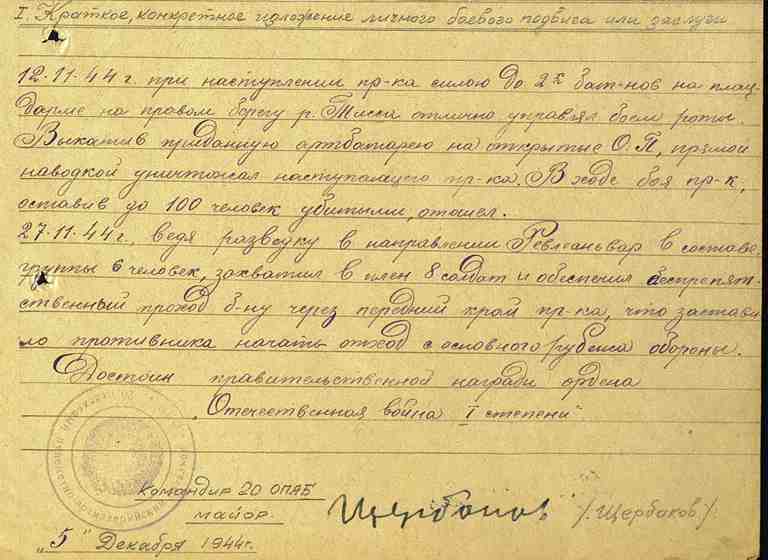 I. Краткое, конкретное изложение личного боевого подвига или заслуги
12.11.44 г. при наступлении пр-ка силою до 2х бат-нов на плац-
дарме на правом берегу р. Тисса отлично управлял боем роты.
Выкатив приданную артбатарею на открытые О.П., прямой
наводкой уничтожал наступающего пр-ка. В ходе боя пр-к,
оставив до 100 человек убитыми, отошел.
27.11.44 г., ведя разведку в направлении Ревлеаньвар в составе
группы 6 человек, захватил в плен 8 солдат и обеспечил беспрепят-
ственный проход б-ну через передний край пр-ка, что застави-
ло противника начать отход с основного рубежа обороны.
Достоин правительственной награды ордена
„Отечественная война I степени"
Командир 20 ОПАБ
майор
Щербаков /Щербаков/
„5" Декабря 1944г.